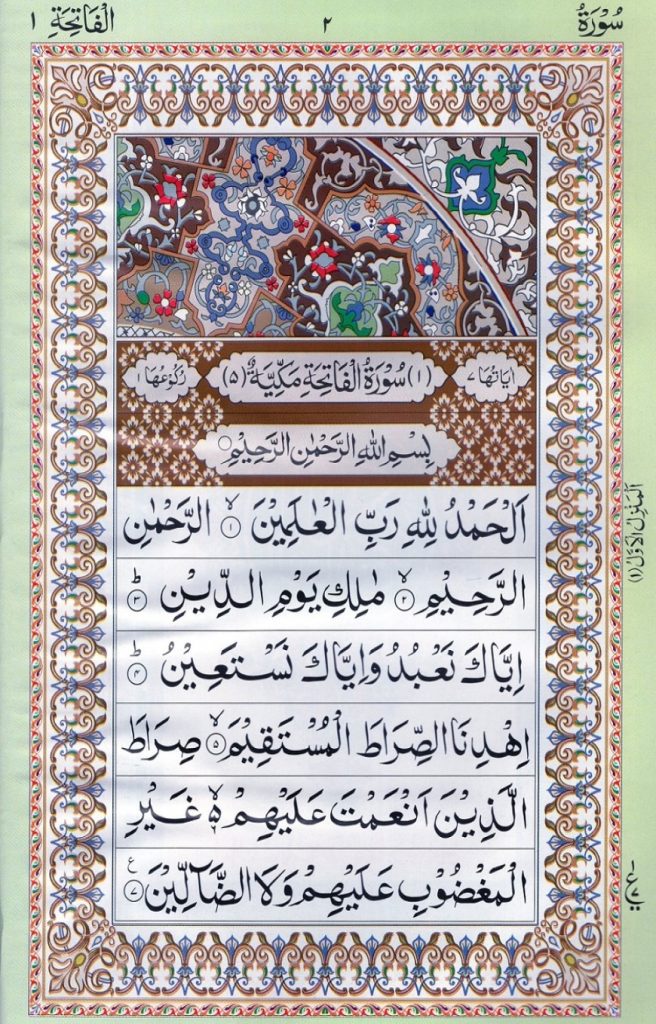 سُوْرَةُ ٢ الْفَاتِحَةِ ١
اٰيَاتُهَا ٧ (١) سُوْرَةُ الْفَاتِحَةِ مَكِّيَّةٌ (٥) رُكُوْعُهَا ١
بِسْمِ اللّٰهِ الرَّحْمٰنِ الرَّحِيْمِ
اَلْحَمْدُ لِلّٰهِ رَبِّ الْعٰلَمِيْنَ ۙ ١ الرَّحْمٰنِ
الرَّحِيْمِ ۙ ٢ مٰلِكِ يَوْمِ الدِّيْنِ ؕ ٣
اِيَّاكَ نَعْبُدُ وَاِيَّاكَ نَسْتَعِيْنُ ؕ ٤
اِهْدِنَا الصِّرَاطَ الْمُسْتَقِيْمَ ۙ ٥ صِرَاطَ
الَّذِيْنَ اَنْعَمْتَ عَلَيْهِمْ ۙ۬ غَيْرِ
الْمَغْضُوْبِ عَلَيْهِمْ وَلَا الضَّآلِّيْنَ ع ٧
اَلْمَنْزِلُ الْاَوَّلُ (١)
ع ١ ٧